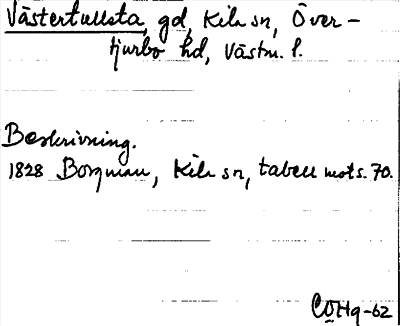 Västertullsta, gd, Kila sn, Över-
tjurbo hd, Västm. l.
Beskrivning.
1828 Borgman, Kila sn, tabell mots. 70.
CÖHg-62